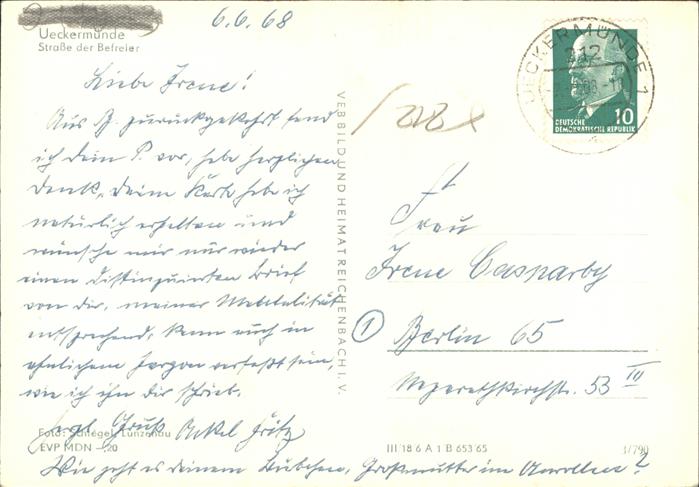 6.6.68
Ueckermünde
Straße der Befreier
Liebe Irene!
Aus B. zurückgekehrt fand
ich dein P. vor, habe herzlichen
Dank, deine Karte habe ich
natürlich erhalten und
wünsche mir nur wieder
einen distinguierten Brief
von dir, meiner Mentalität
entsprechend, kann auch in
ähnlichem Jargon verfaßt sein,
wie ich ihn dir schrieb.
Hrzl. Gruß Onkel Fritz
Wie geht es deinem Bübchen, Großmutter im
Foto: Schlegel, Lunzenau
EVP MDN —,20
VEB BILD UND HEIMAT REICHENBACH I. V.
III 18 6 A 1 B 653 65
1/790
UECKERMÜNDE 1
212
10
DEUTSCHE
DEMOKRATISCHE REPUBLIK
Frau
Irene
1 Berlin 65
Nazarethkirchstr. 53 III